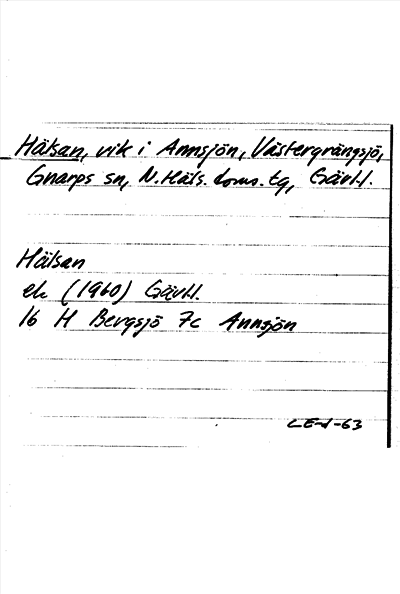 Hälsan, vik i Annsjön, Västergrängsjö,
Gnarps sn, N. Häls. doms. tg, Gävl.l.
Hälsan
ek (1960) Gävl.l.
16 H Bergsjö 7c Annsjön
LE-d-63